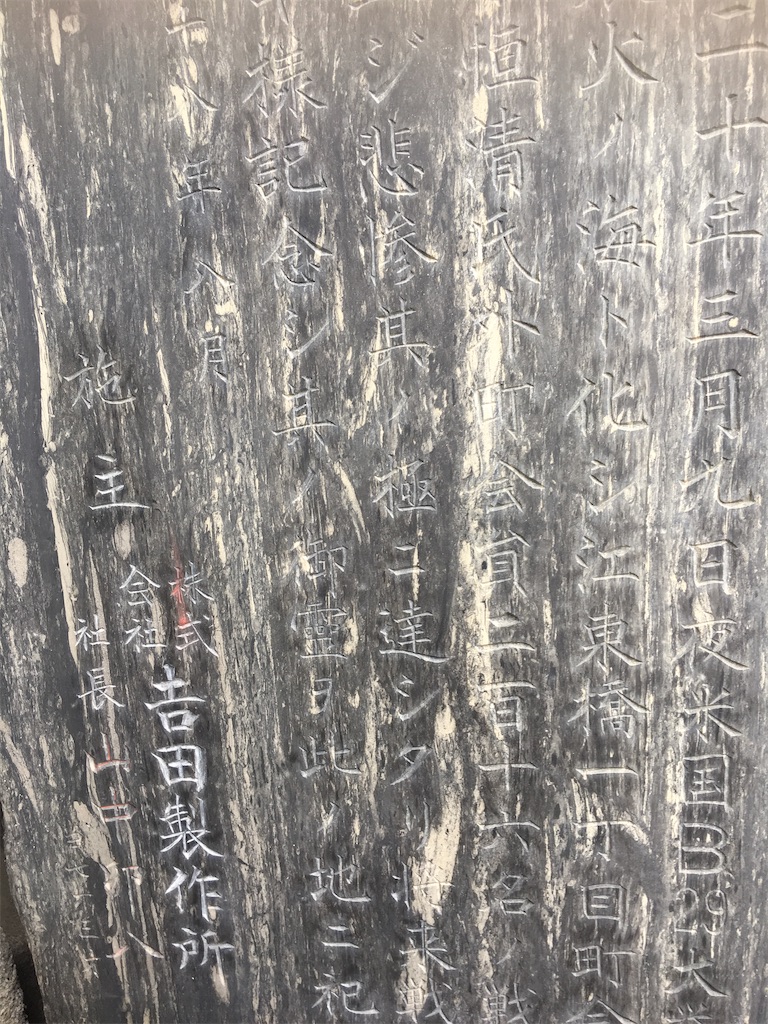 二十年三月九日夜米国B29大
火ノ海ト化シ江東橋一丁目町会
垣清氏外町会員二百十六名ノ戦
ジ悲惨其ノ極ニ達シタ 将来戦
様記念シ其ノ御霊ヲ此ノ地ニ祀
八年八月
施主
株式会社吉田製作所
社長山中卯八